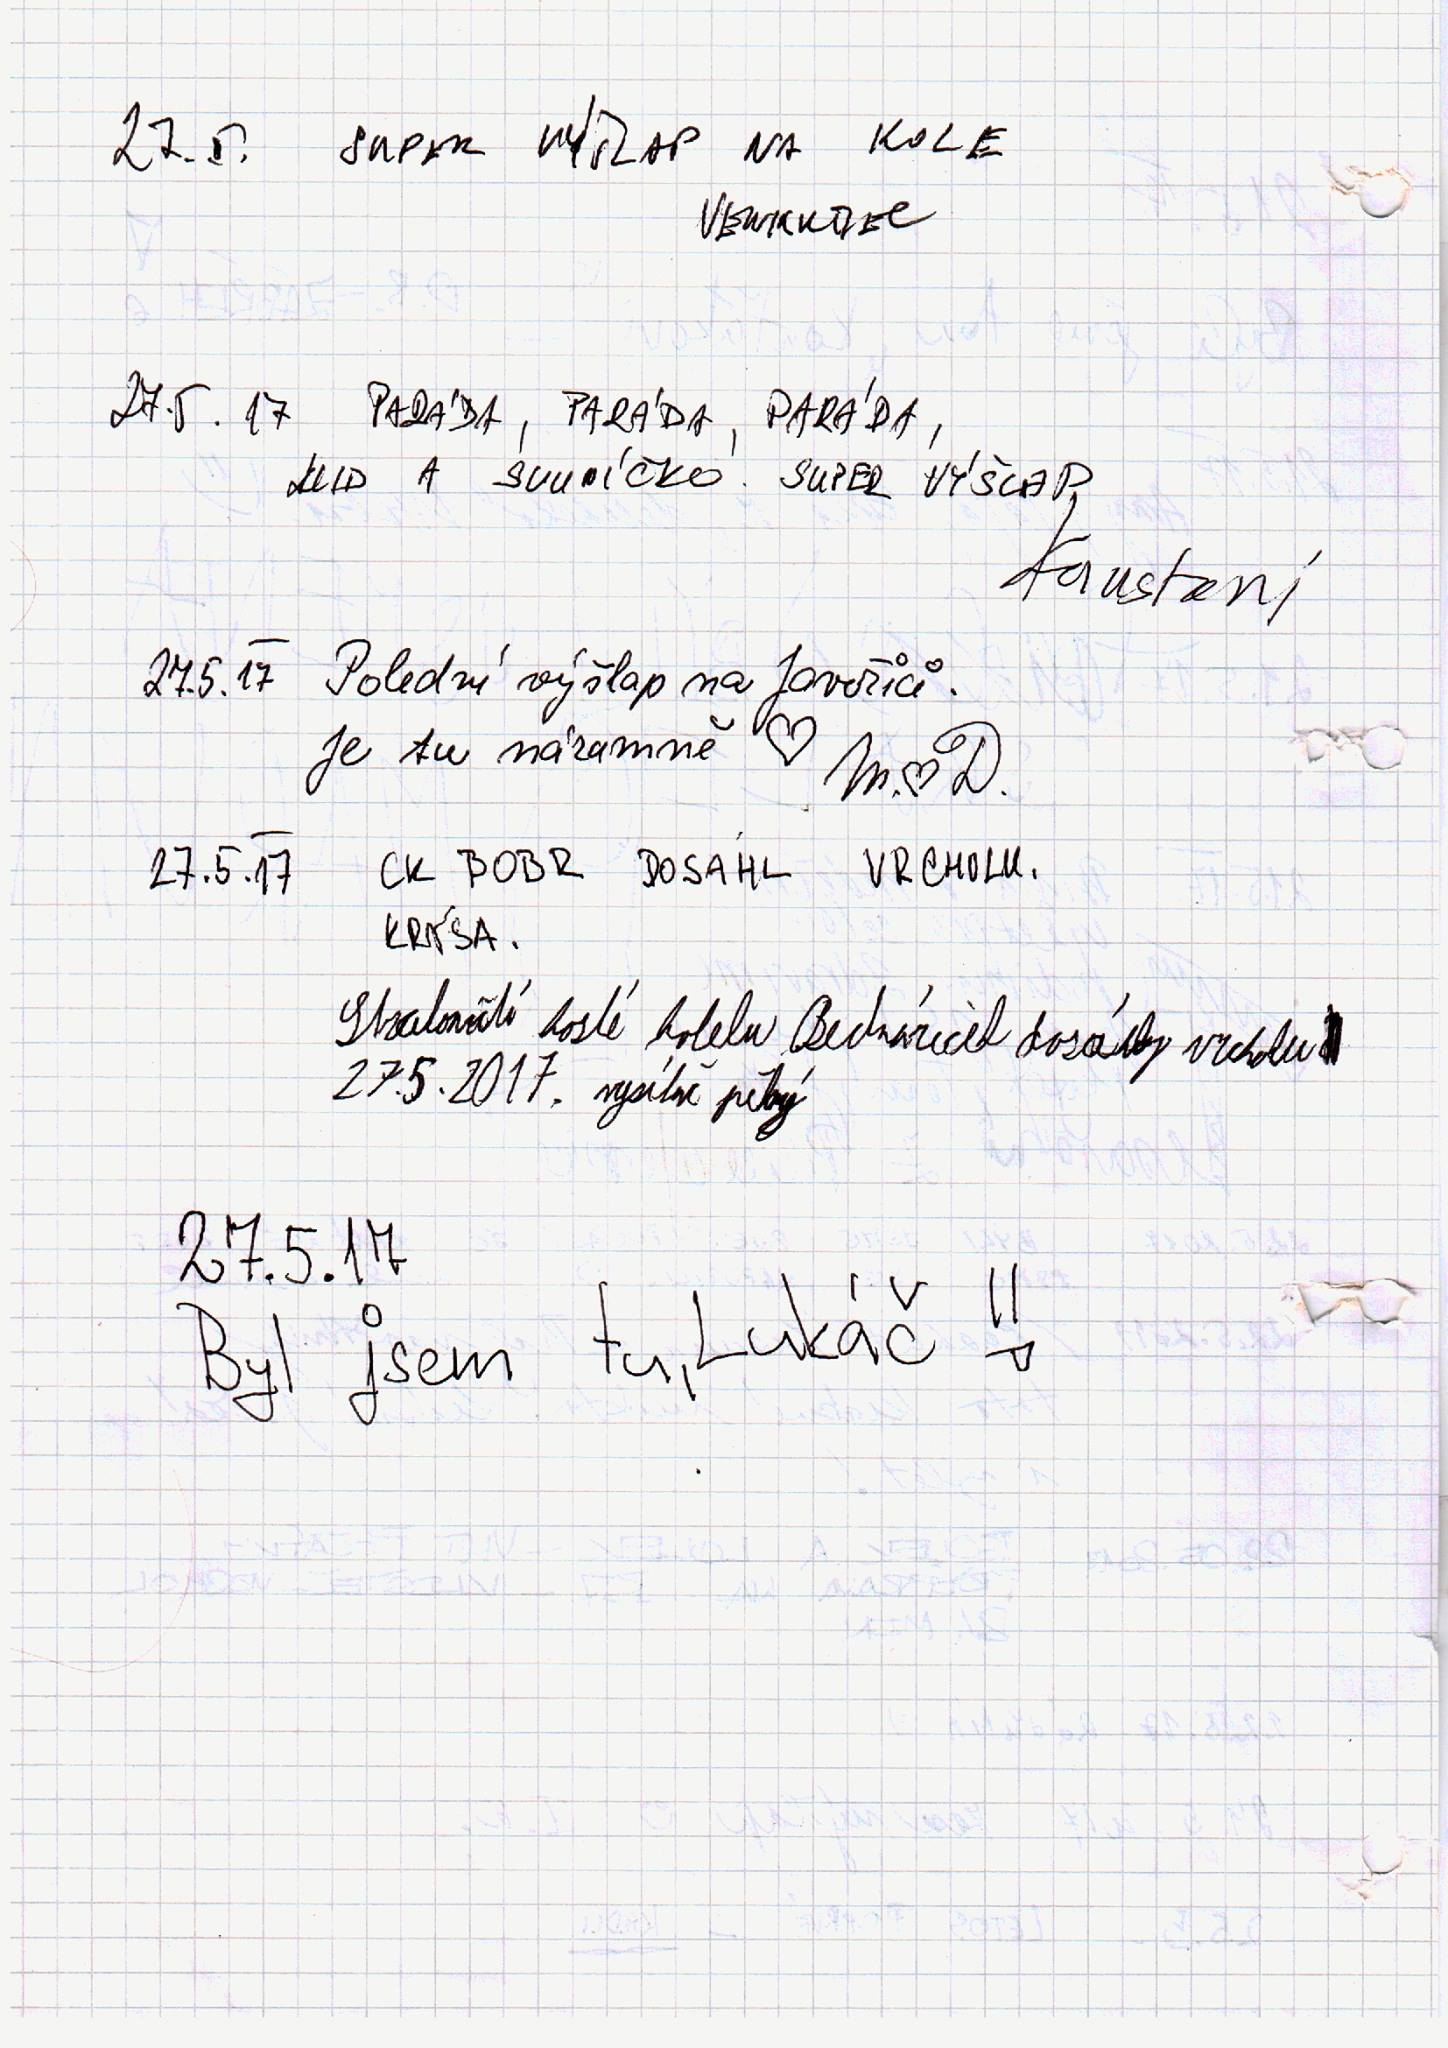 27.5. SUPER VÝŠLAP NA KOLE
27.5.17 PARÁDA, PARÁDA, PARÁDA,
KLID A SLUNÍČKO. SUPER VÝŠLAP,
27.5.17 Polední výšlap na Javořici.
Je tu náramně ♡ M.♡D.
27.5.17 CK BOBR DOSÁHL VRCHOLU.
KRÁSA.
hosté hotelu Bednáříček dosáhly vrcholu
27.5.2017. pěkný
27.5.17
Byl jsem tu, Lukáč !! P